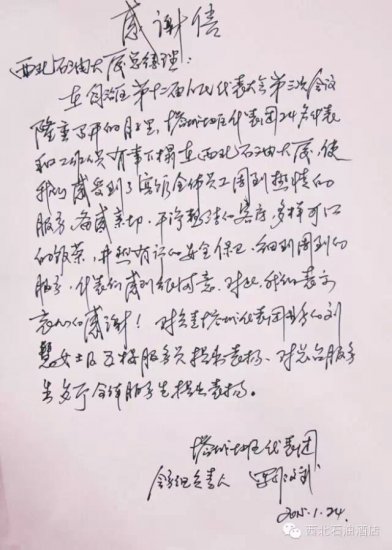 感谢信
西北石油大厦总经理：
在自治区第十二届人民代表大会第三次会议
隆重召开的日子里，塔城地区代表团24名代表
和工作人员有幸下榻在西北石油大厦，使
我们感受到了宾馆全体员工周到热情的
服务，倍感亲切，干净整洁的客房，多样可口
的饭菜，井然有序的安全保卫，细致周到的
服务，代表们感到很满意，对此，我们表示
衷心的感谢！对负责塔城代表团服务的刘
慧女士及五楼服务员提出表扬，对总台服务
员多方全体服务生提出表扬。
塔城地区代表团
会务组负责人
2015.1.24.
西北石油酒店